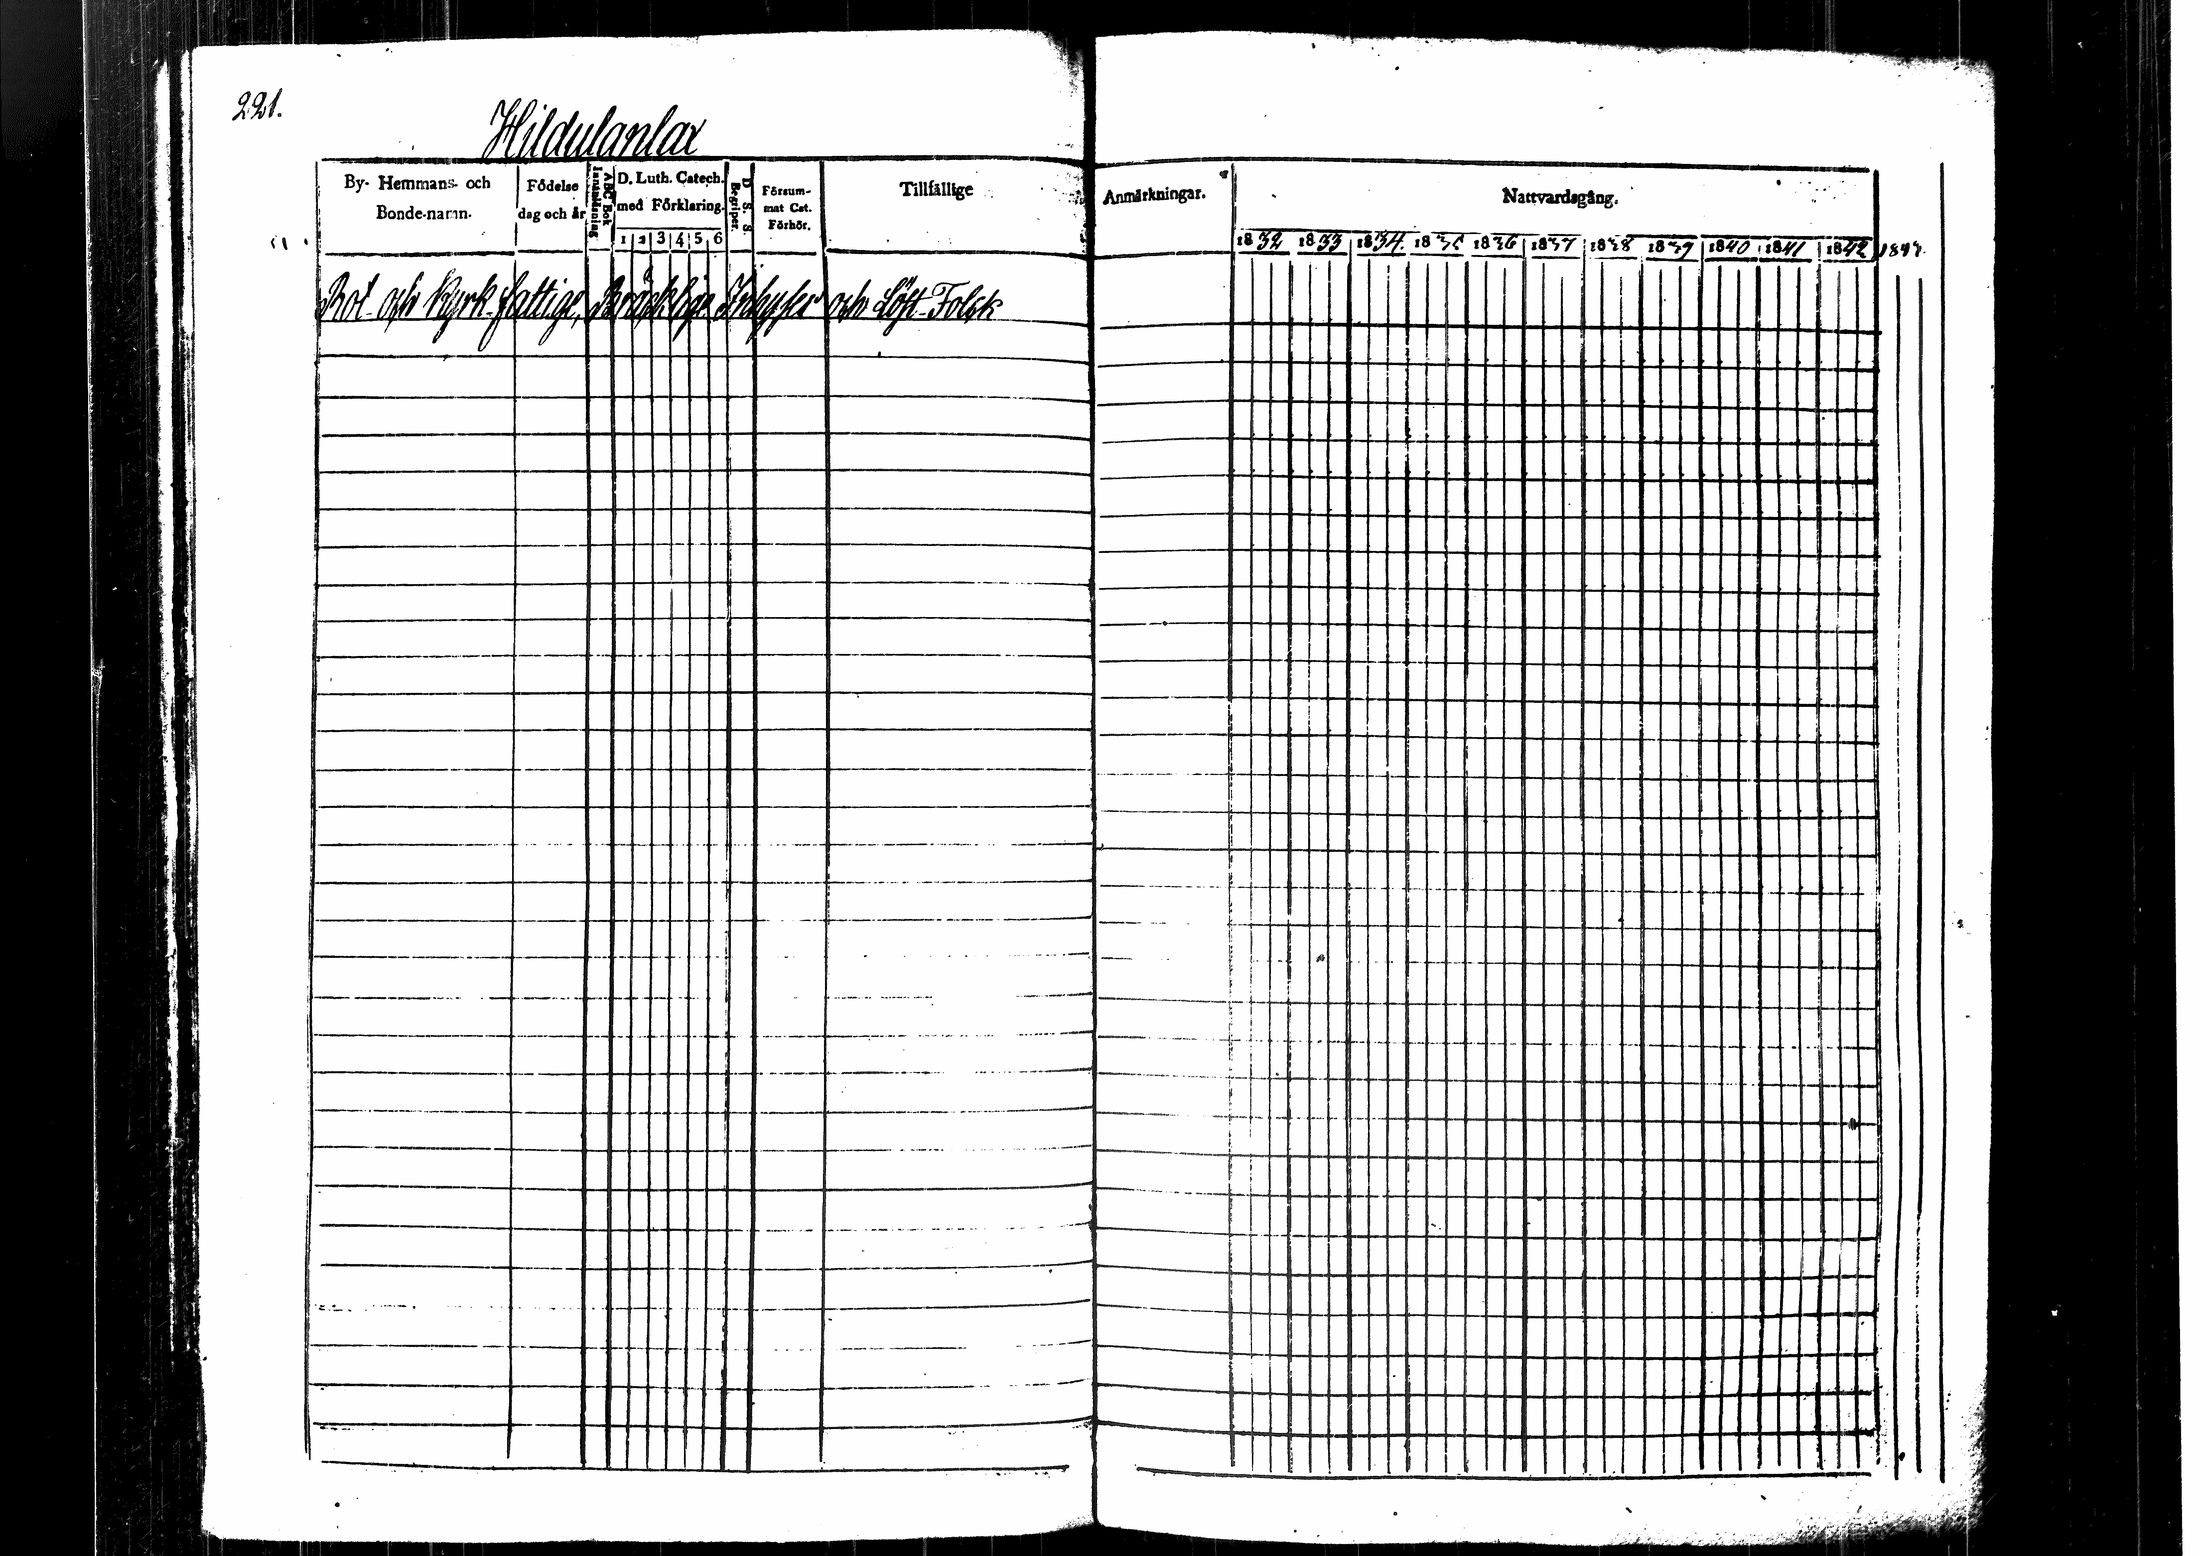 221.
Hildulanlax
By- Hemmans- och Bonde-namn.
Födelse dag och år
ABC Bok Innanläsning
D. Luth. Catech. med Förklaring.
1 2 3 4 5 6
D. S. S. Begriper.
Försum- mat Cat. Förhör.
Tillfällige
Anmärkningar.
Nattvardsgång.
1832 1833 1834. 1835 1836 1837 1838 1839 1840 1841 1842 1843
Rot- och Kyrk-fattige, Bräcklige Inhyses och Löst-Folck